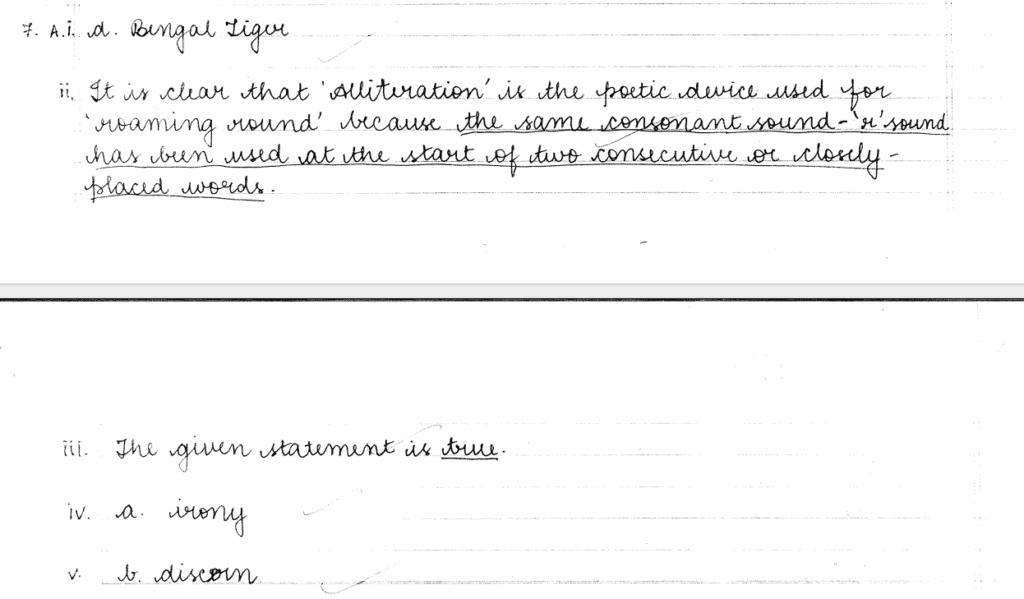 7. A.i. d. Bengal Tiger
ii. It is clear that 'Alliteration' is the poetic device used for
'roaming round' because the same consonant sound-'r' sound
has been used at the start of two consecutive or closely-
placed words.
iii. The given statement is true.
iv. a. irony
v. b. discern